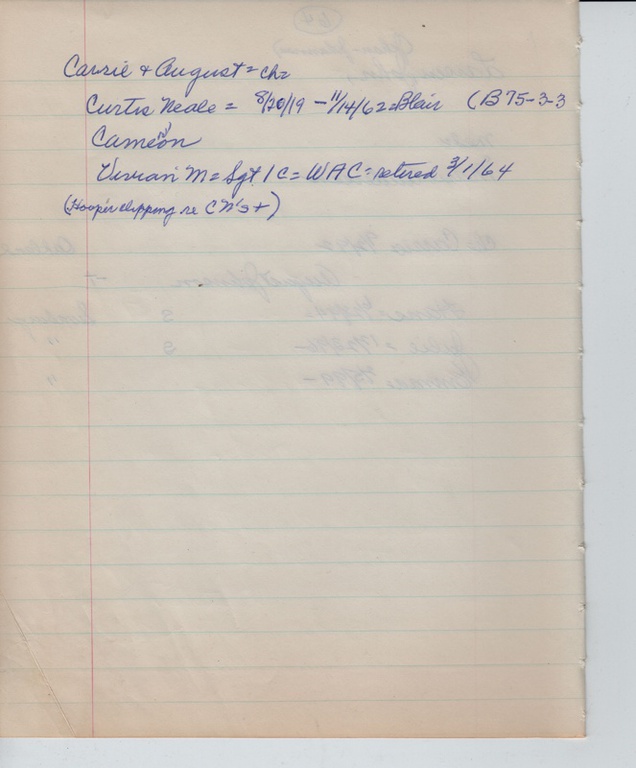 Carrie + August = ch =
Curtis Neale = 8/20/19 - 11/14/62 = Blair (B 75-3-3
Cameron
Vivian M = Sgt 1 C = WAC = retired 3/1/64
(Hooper clipping re C N's +)